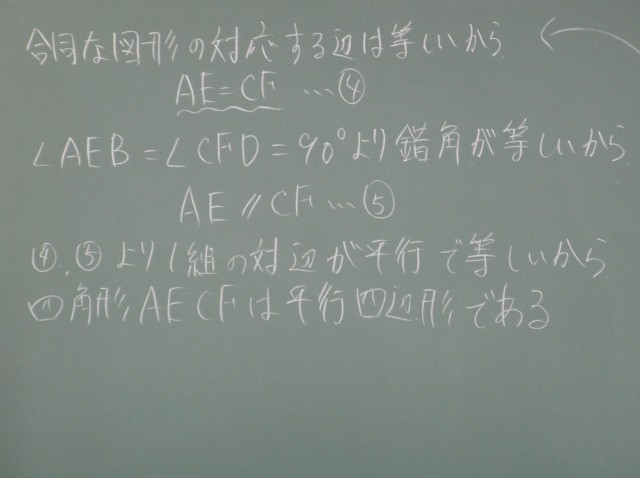 合同な図形の対応する辺は等しいから
AE=CF …④
∠AEB=∠CFD=90°より錯角が等しいから
AE∥CF…⑤
④,⑤より1組の対辺が平行で等しいから
四角形AECFは平行四辺形である